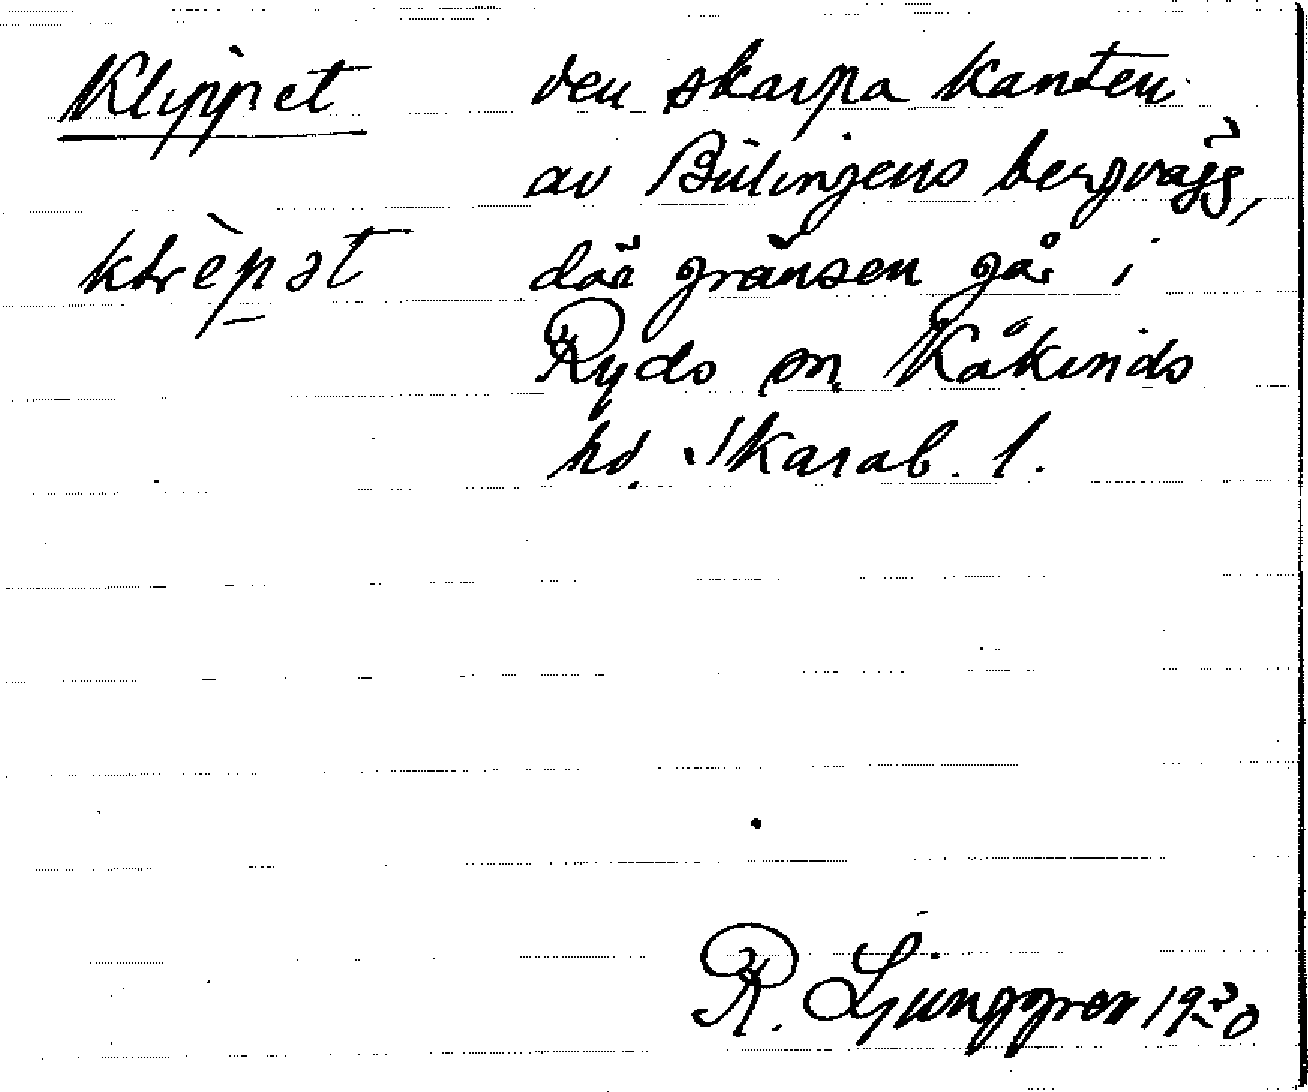 Klippet
den skarpa kanten
av Billingens bergvägg,
klèpət
där gränsen går i
Ryds sn, Kåkinds
hd, Skarab. l.
R. Ljunggren 1920